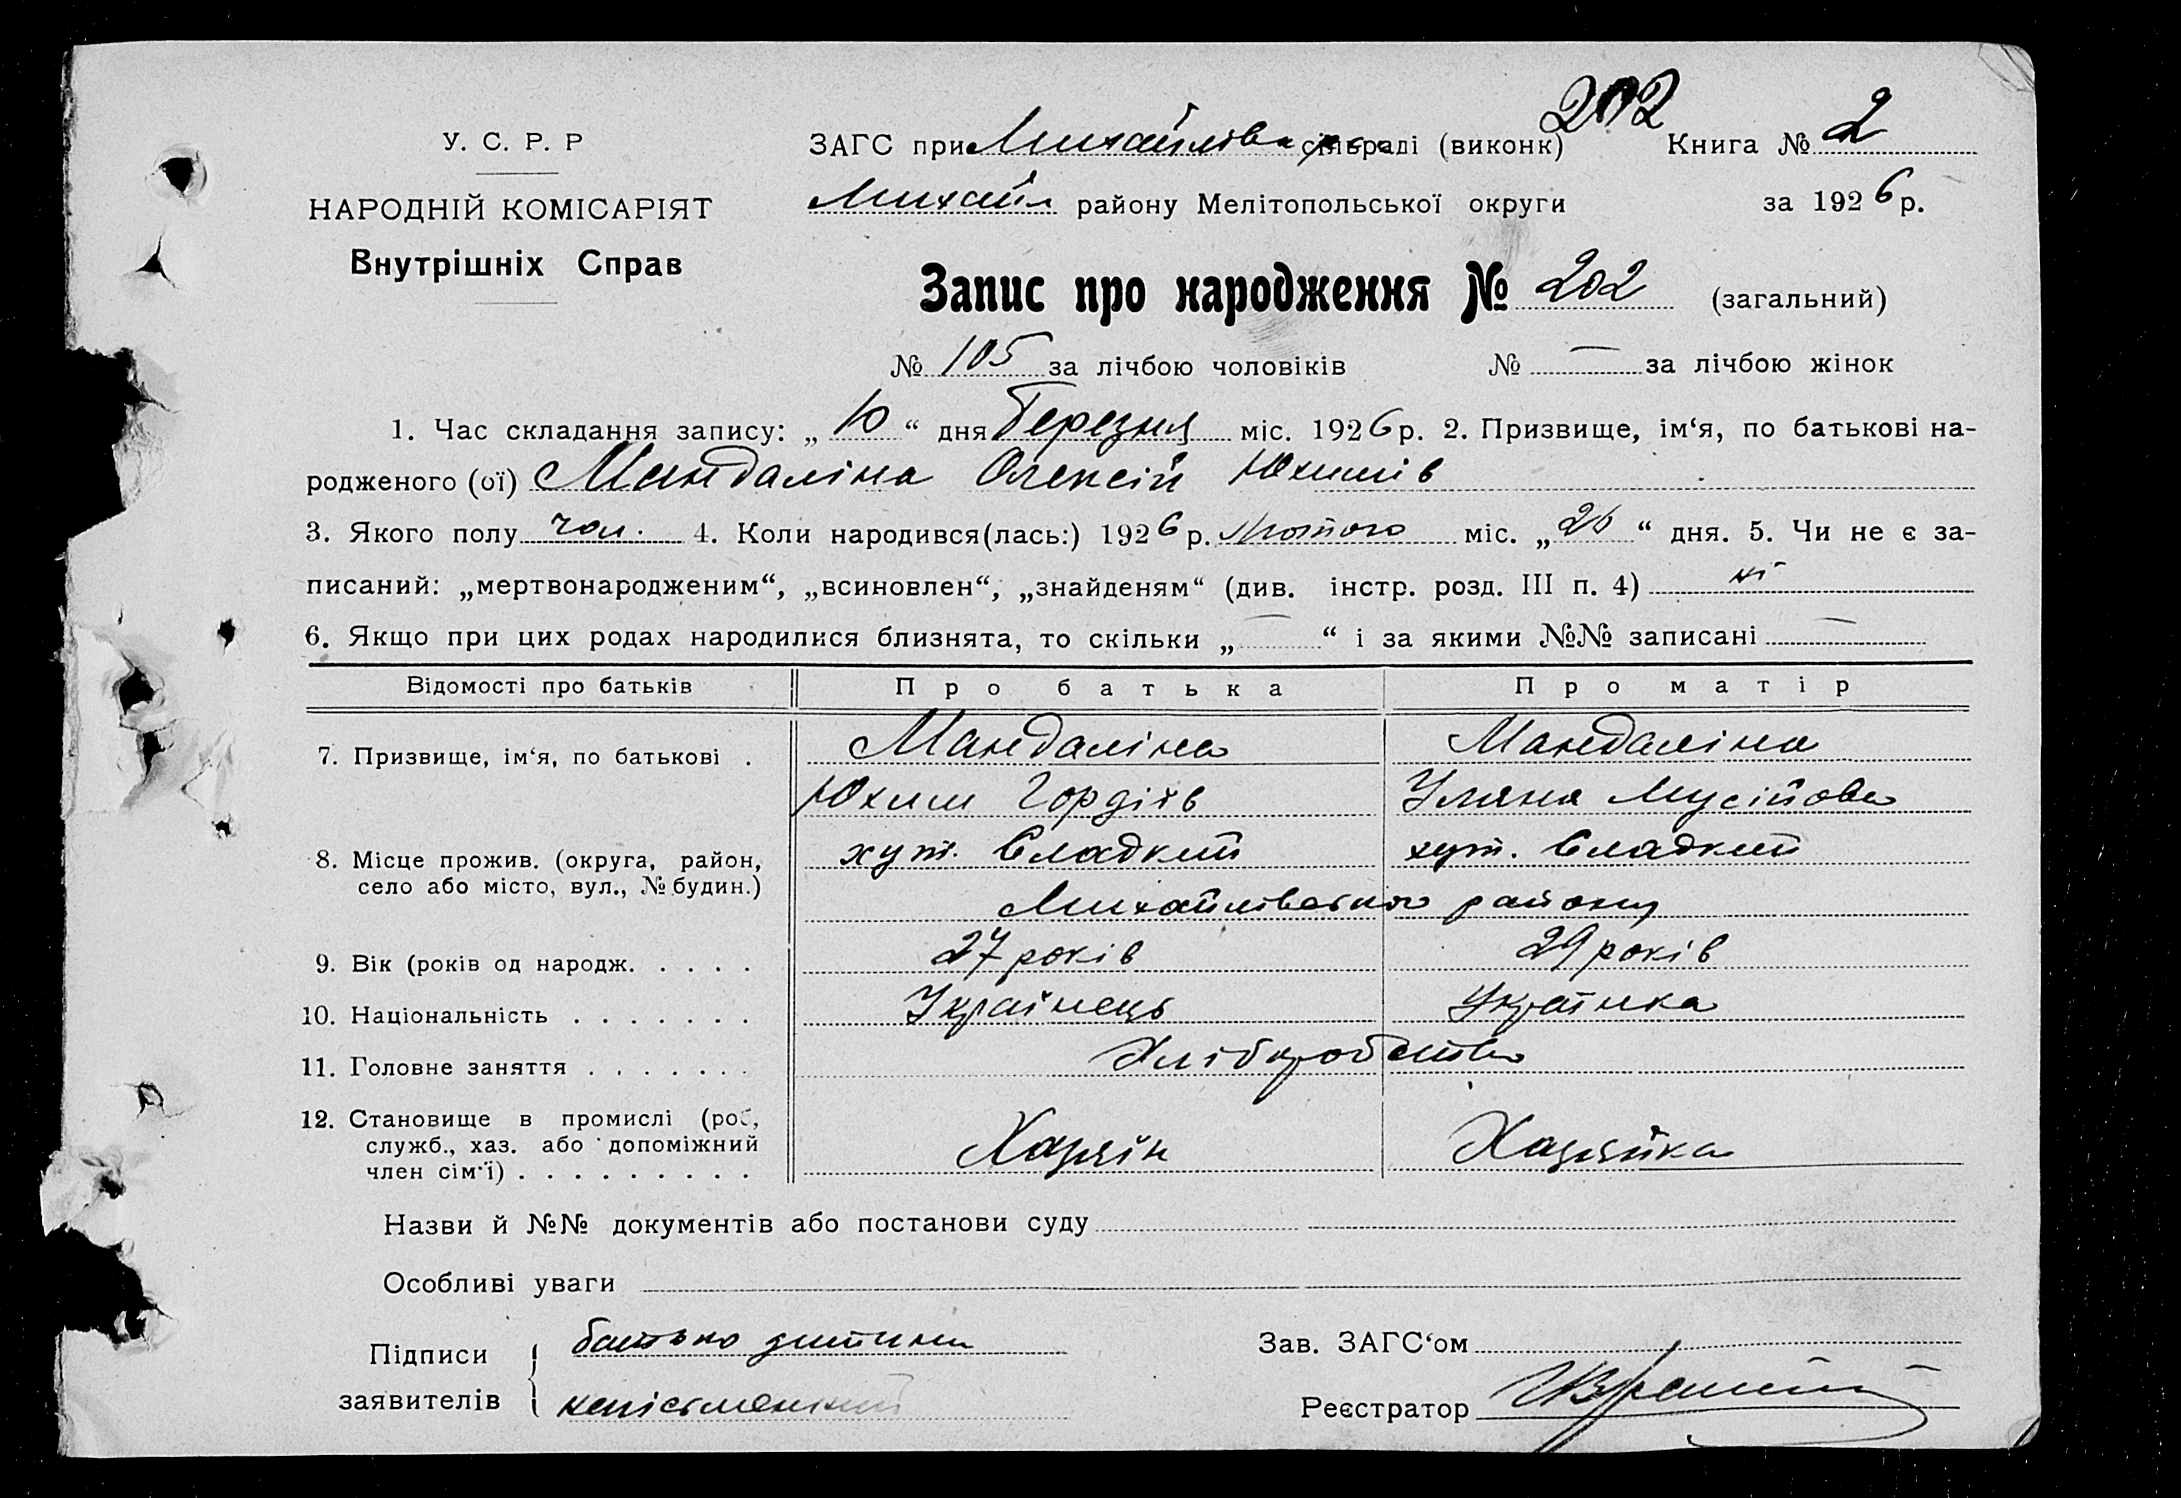 202
У. С. Р. Р
ЗАГС при Михайлівск сільраді (виконк) Книга № 2
НАРОДНІЙ КОМІСАРІЯТ
Михайл району Мелітопольської округи за 1926 р.
Внутрішніх Справ
Запис про народження № 202 (загальний)
№ 105 за лічбою чоловіків № — за лічбою жінок
1. Час складання запису: „10“ дня Березня міс. 1926 р. 2. Призвище, ім‘я, по батькові на-
родженого (ої) Мандаліна Олексій Юхимів
3. Якого полу чол. 4. Коли народився(лась:) 1926 р. Лютого міс. „26“ дня. 5. Чи не є за-
писаний: „мертвонародженим“, „всиновлен“, „знайденям“ (див. інстр. розд. III п. 4) ні
6. Якщо при цих родах народилися близнята, то скільки „—“ і за якими №№ записані —
Відомості про батьків Про батька Про матір
7. Призвище, ім‘я, по батькові . Мандаліна Мандаліна
Юхим Гордіїв Уляна Мусійова
8. Місце прожив. (округа, район, хут. Сладкий хут. Сладкий
село або місто, вул., № будин.) Михайлівського району
9. Вік (років од народж. . . . . 27 років 29 років
10. Національність . . . . . . . Українець Українка
11. Головне заняття . . . . . . . Хліборобство
12. Становище в промислі (роб,
служб., хаз. або допоміжний Хазяїн Хазяйка
член сім‘ї) . . . . . . . . .
Назви й №№ документів або постанови суду
Особливі уваги
Підписи батько дитини Зав. ЗАГС‘ом
заявителів неписьменний Реєстратор